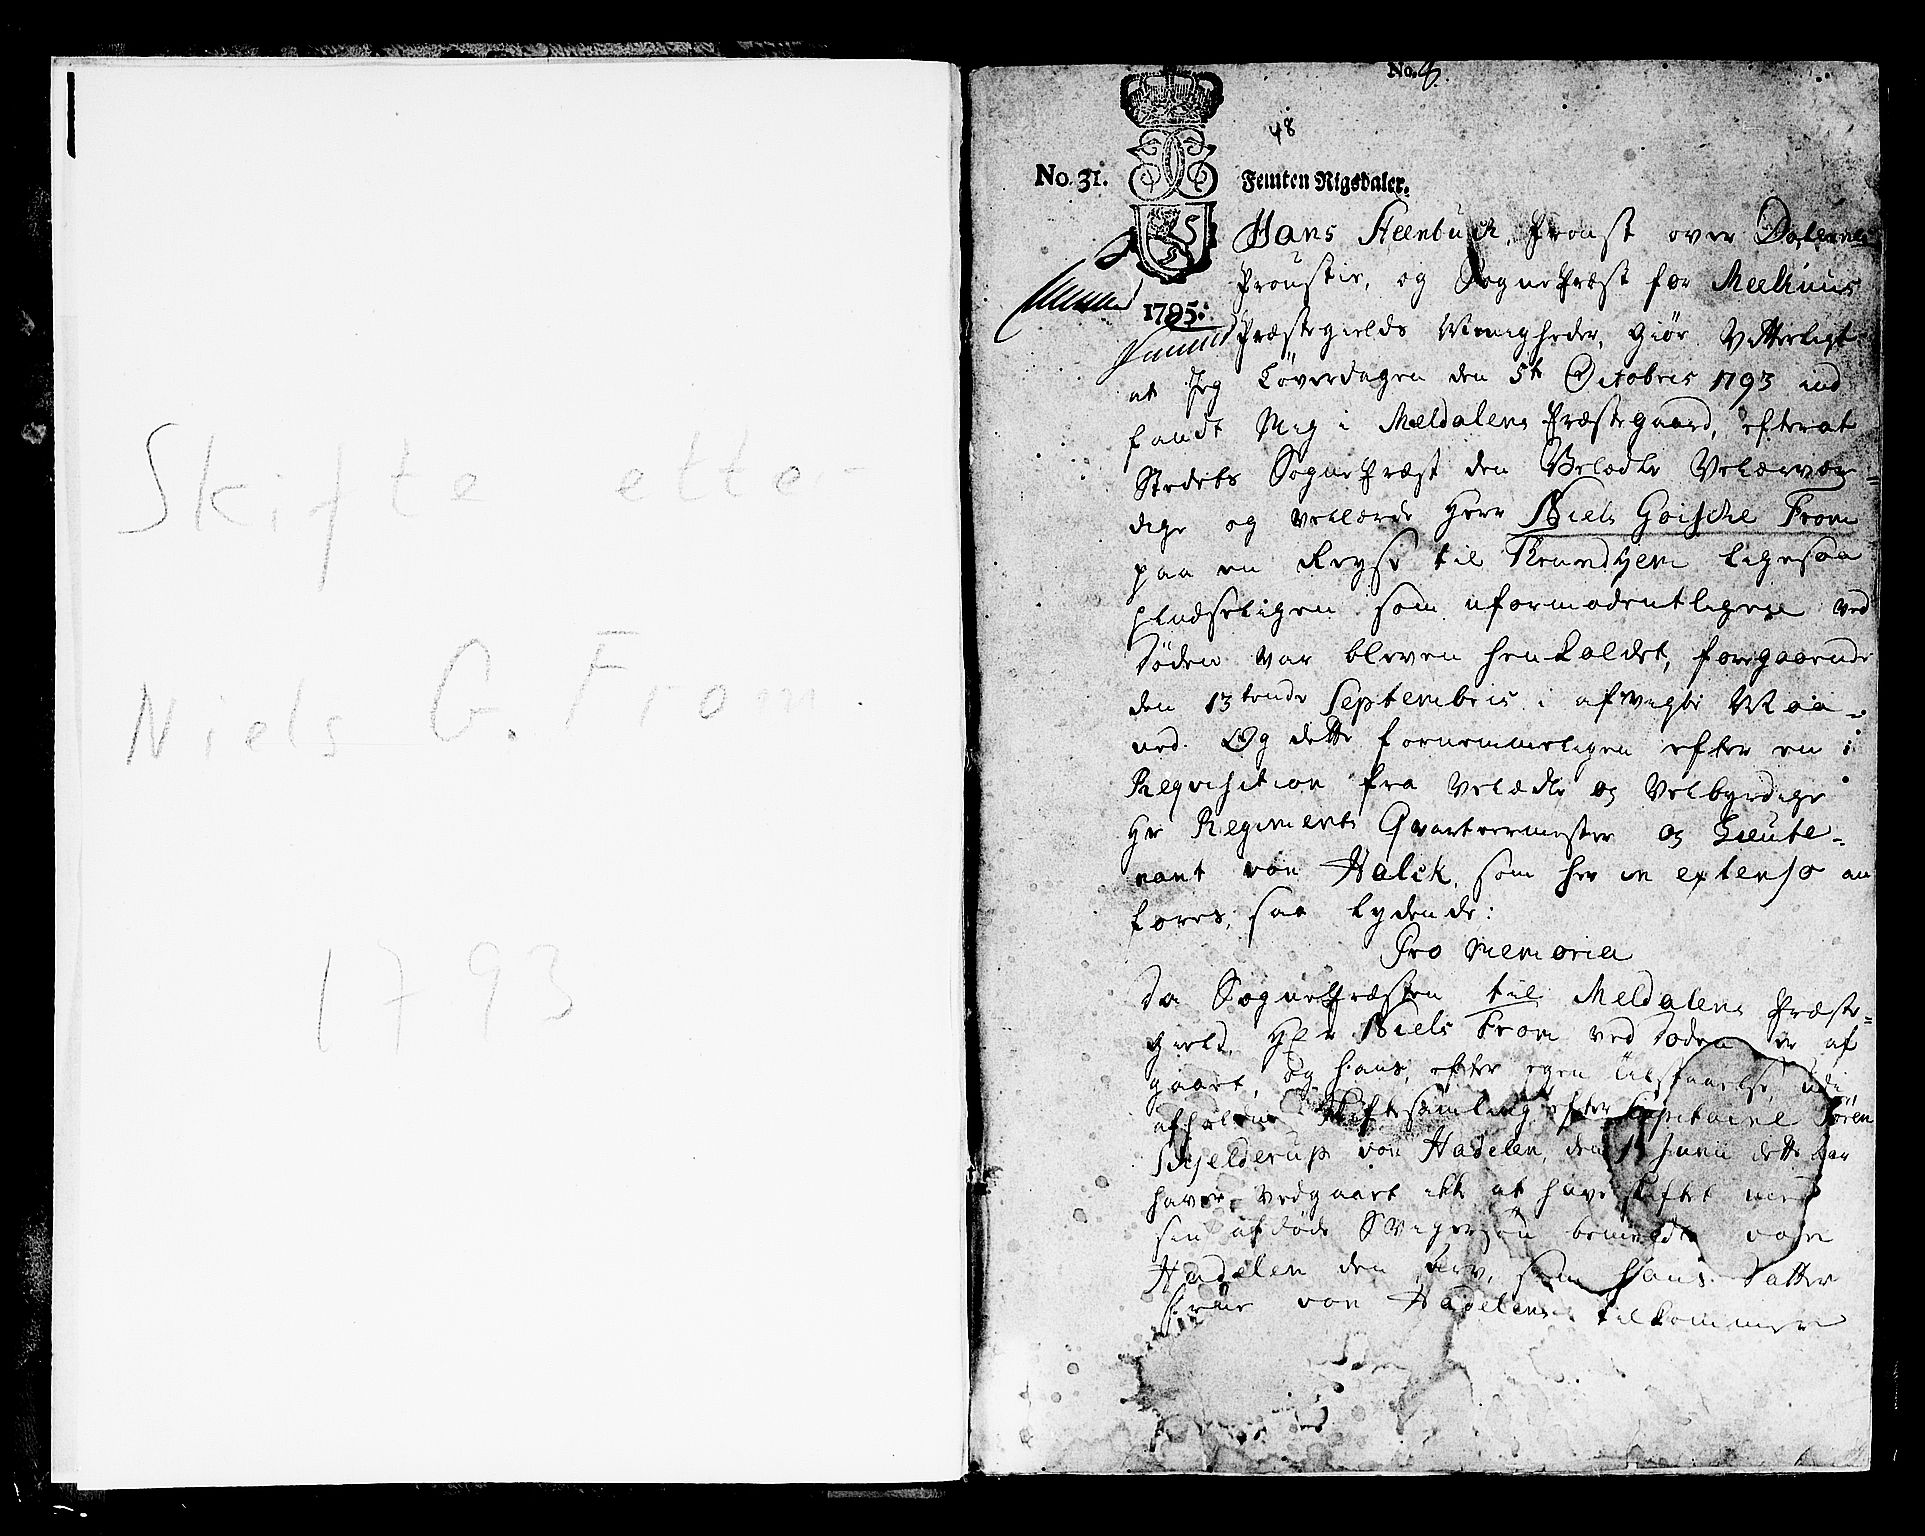 Skifte etter
Niels G. From.
1793
No. 8.
48
No. 31. Femten Rigsdaler.
1795.
Hans Steenbuch, Proust over Dalernes
Proustie, og SognePræst for Melhuus
Præstegields Menigheder, Giør Vitterligt
at Jeg Løverdagen den 5te Octobris 1793 ind
fandt Mig i Meldalens Præstegaard, efterat
Stedets SognePræst den Velædle Velærvær-
dige og Vellærde Herr Niels Goische From
paa en Reyse til Trundhjem ligesaa
pludseligen som uformodentligen ved
Døden var bleven henkaldet, foregaaende
den 13tende Septembris i afvigte Maa-
ned. Og dette fornemmeligen efter en
Requisition fra Velædle og Velbyrdige
Hr Regiments Qvarteermester og Lieute-
nant von Halck, som her in extenso an
føres, saa lydende:
Pro Memoria
Da SognePræsten til Meldalens Præste-
gield, Hr Niels From ved Døden er af
gaaet, og hans, efter egen tilstaaelse udi
afholdne Skiftesamling efter Capitaine Søren
Schjelderup von Hadelen, den 15 Junii dette Aar
haver vedgaaet ikke at have skiftet med
sin afdøde Svigersøn bemeldte von
Hadelen den Arv, som hans Datter
Frue von Hadelens tilkommer